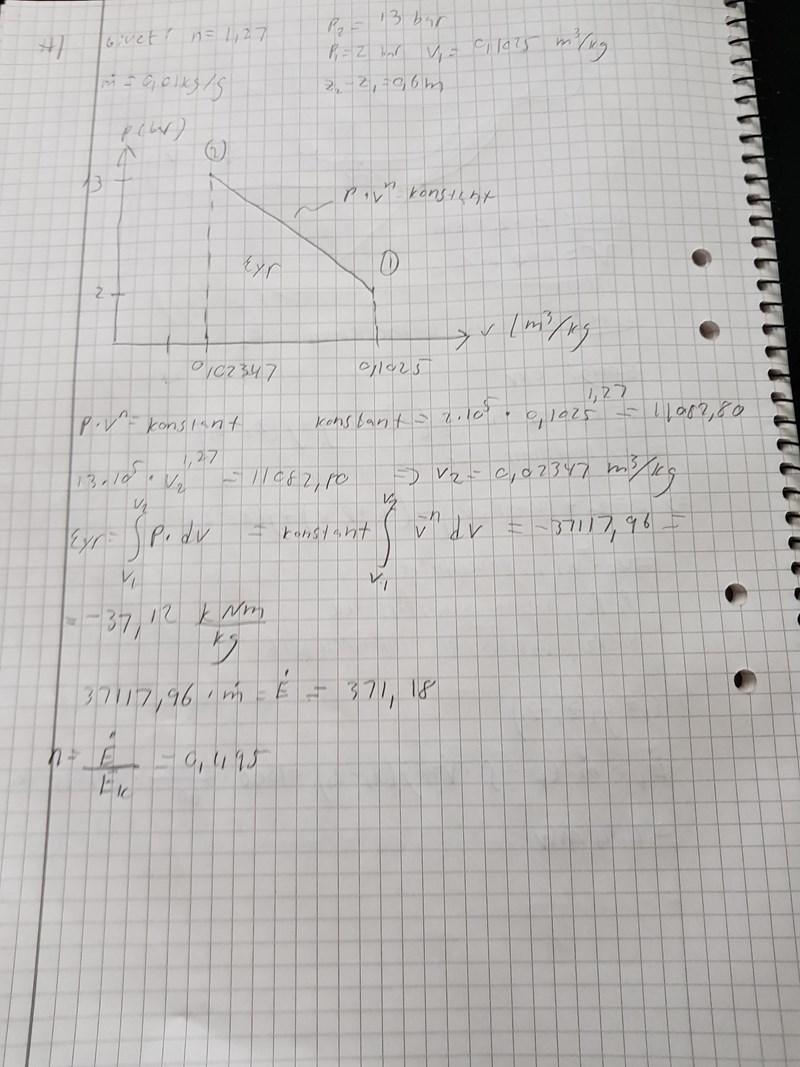 Givet: n = 1,27 P₂ = 13 bar
P₁ = 2 bar V₁ = 0,1025 m³/kg
ṁ = 0,01 kg/s z₂ - z₁ = 0,9 m
P (bar)
②
13
P·vⁿ konstant
①
2
v (m³/kg
0,02347 0,1025
P·vⁿ = konstant konstant = 2·10⁵ · 0,1025^1,27 = 11082,80
13·10⁵ · v₂^1,27 = 11082,80 => v₂ = 0,02347 m³/kg
= ∫ᵥ₁^v₂ P·dv = konstant ∫ᵥ₁^v₂ v⁻ⁿ dv = -37117,96 =
= -37,12 kNm/kg
37117,96 · ṁ = Ė = 371,18
n = Ė/Eₖ = 0,1195